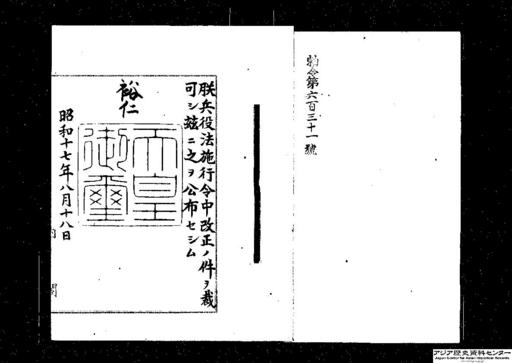 勅令第六百三十一號
朕兵役法施行令中改正ノ件ヲ裁
可シ茲ニ之ヲ公布セシム
裕仁
天皇
御璽
昭和十七年八月十八日
内閣
アジア歴史資料センター
Japan Center for Asian Historical Records